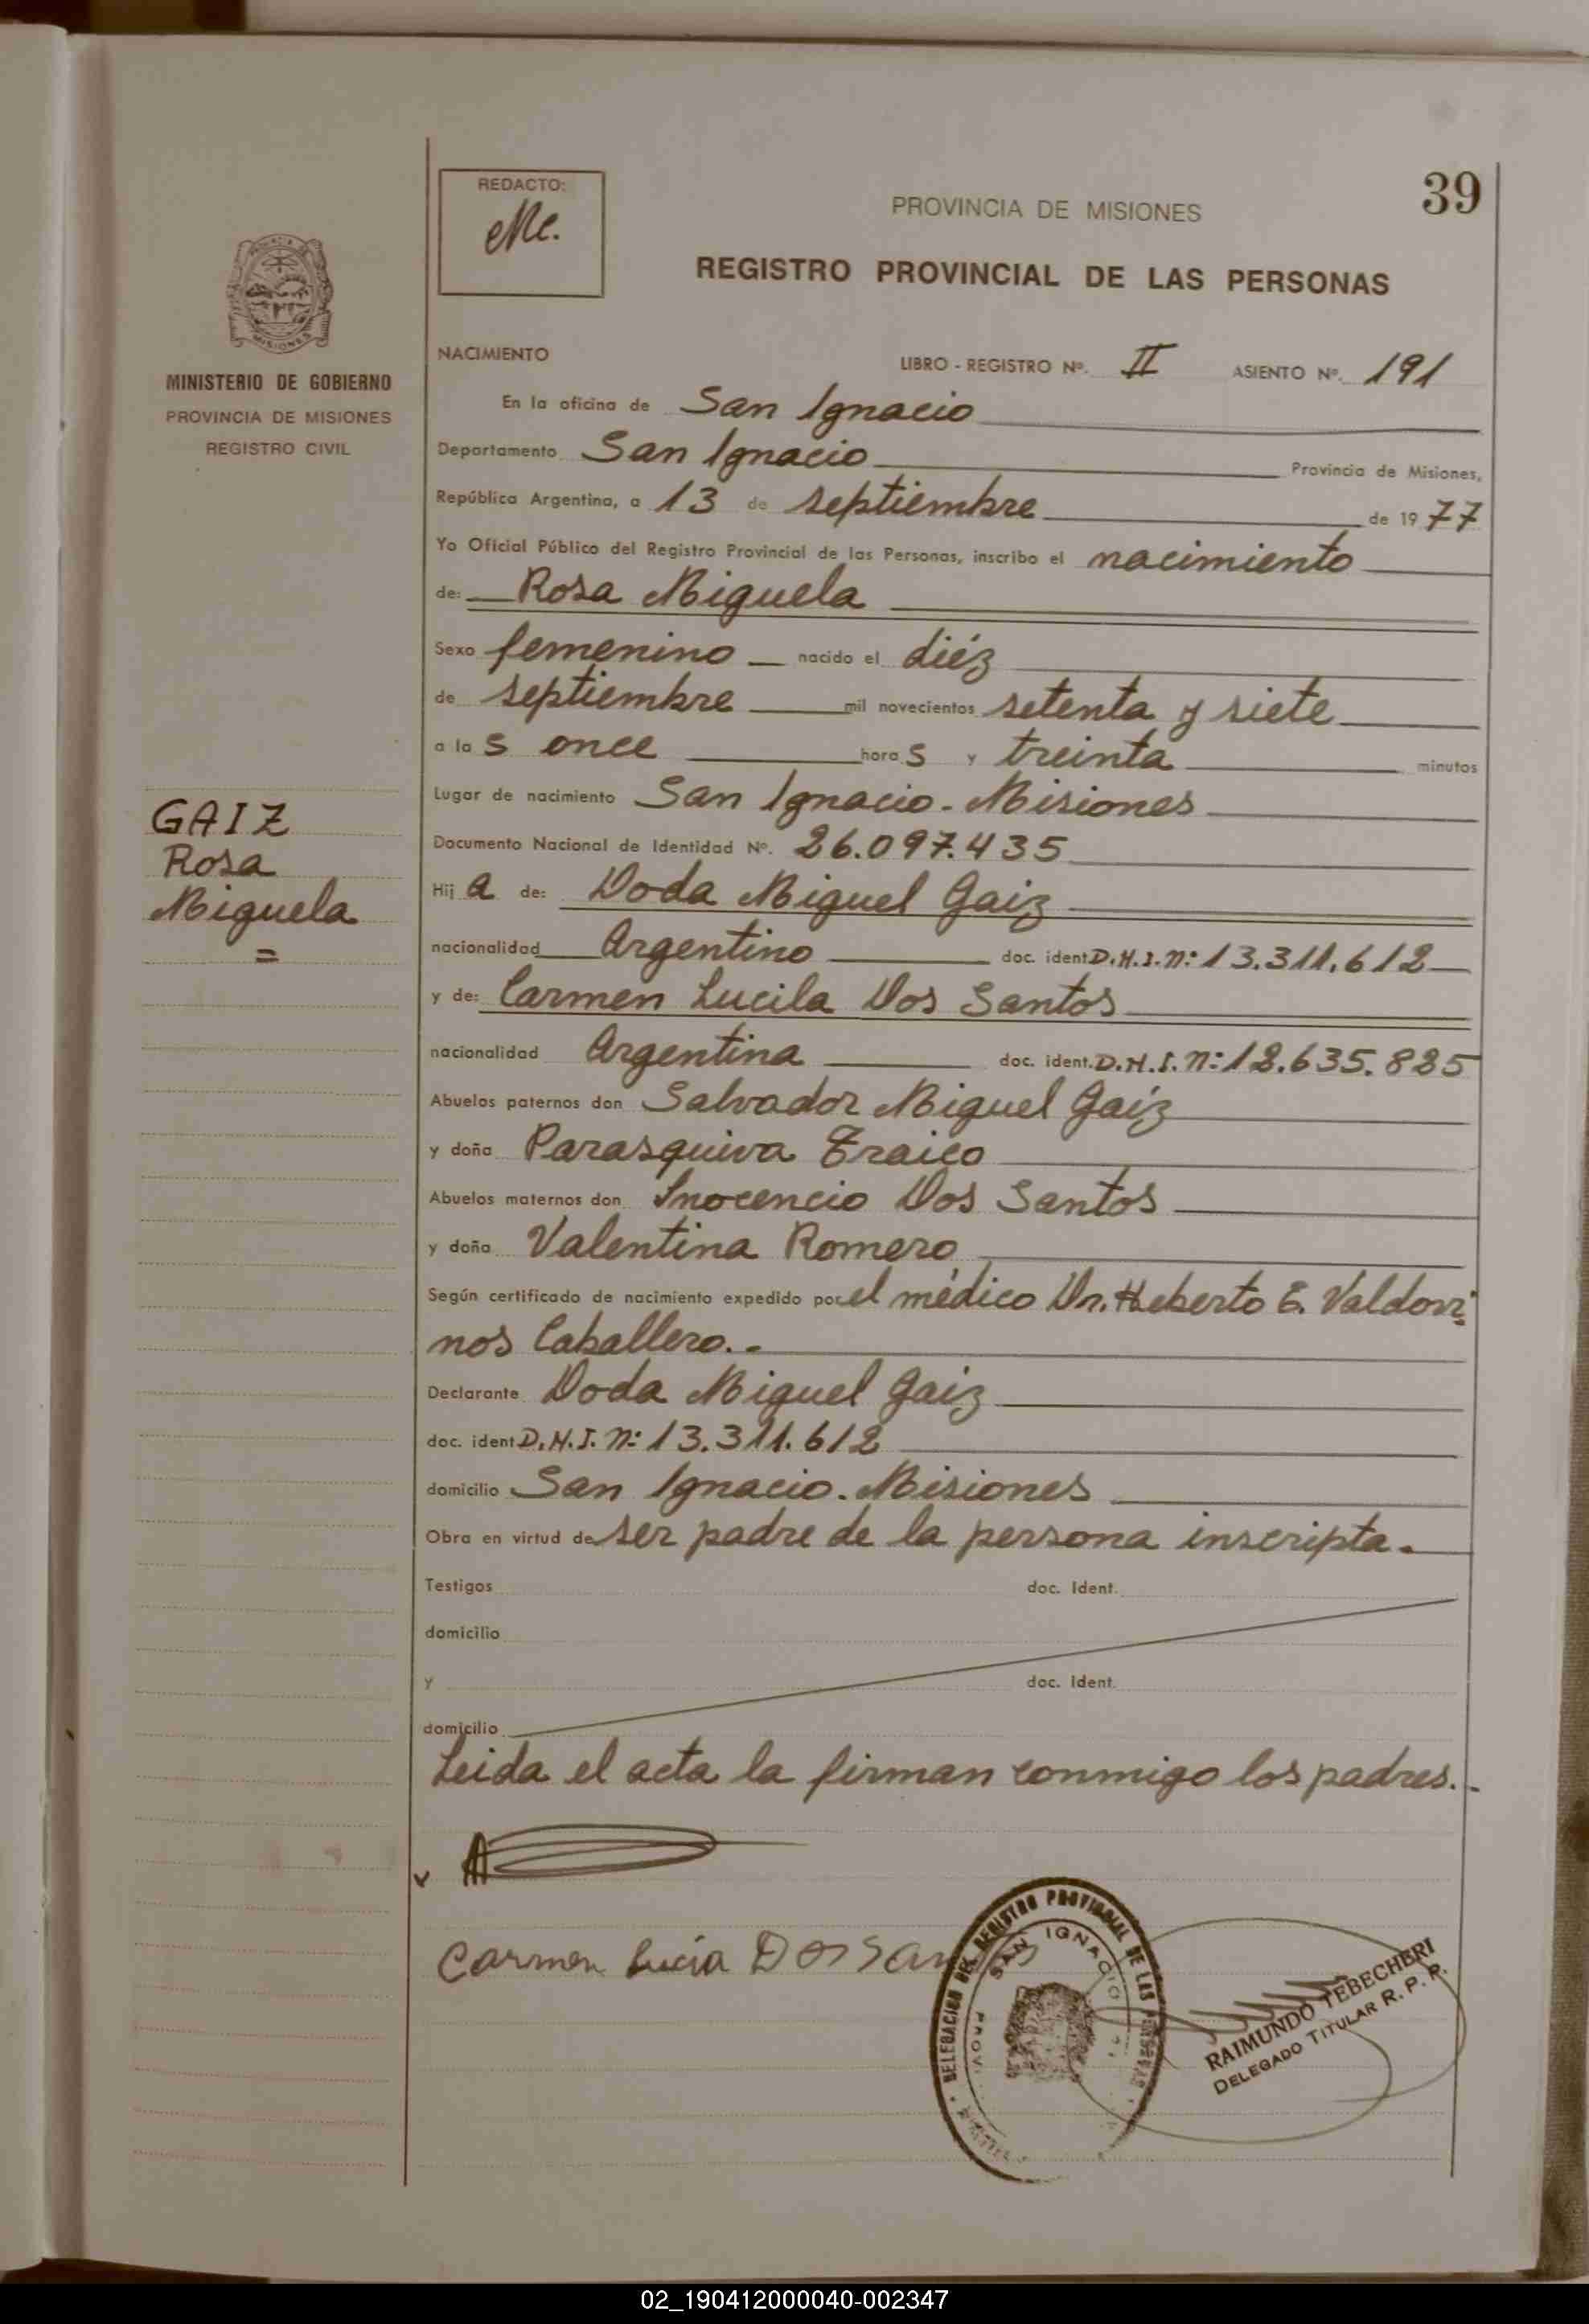 39
REDACTO:
PROVINCIA DE MISIONES
REGISTRO PROVINCIAL DE LAS PERSONAS
MINISTERIO DE GOBIERNO
PROVINCIA DE MISIONES
REGISTRO CIVIL
NACIMIENTO LIBRO - REGISTRO Nº. II ASIENTO Nº. 191
En la oficina de San Ignacio
Departamento San Ignacio Provincia de Misiones,
República Argentina, a 13 de septiembre de 1977
Yo Oficial Público del Registro Provincial de las Personas, inscribo el nacimiento
de: Rosa Miguela
Sexo femenino nacido el diéz
de septiembre mil novecientos setenta y siete
a las once horas y treinta minutos
Lugar de nacimiento San Ignacio - Misiones
GAIZ
Rosa
Miguela
=
Documento Nacional de Identidad Nº. 26.097.435
Hija de: Doda Miguel Gaiz
nacionalidad Argentino doc. ident D.N.I. n: 13.311.612
y de: Carmen Lucila Dos Santos
nacionalidad Argentina doc. ident. D.N.I. n: 12.635.825
Abuelos paternos don Salvador Miguel Gaiz
y doña Parasquiva Traico
Abuelos maternos don Inocencio Dos Santos
y doña Valentina Romero
Según certificado de nacimiento expedido por el médico Dr. Heberto E. Valdovi
nos Caballero.-
Declarante Doda Miguel Gaiz
doc. ident D.N.I. n: 13.311.612
domicilio San Ignacio. Misiones
Obra en virtud de ser padre de la persona inscripta.
Testigos doc. Ident.
domicilio
y doc. Ident.
domicilio
Leida el acta la firman conmigo los padres.-
Carmen Lucia Dos San
DELEGACION DEL REGISTRO PROVINCIAL DE LAS PERSONAS
SAN IGNACIO
RAIMUNDO TEBECHERI
DELEGADO TITULAR R. P. P.
02_190412000040-002347